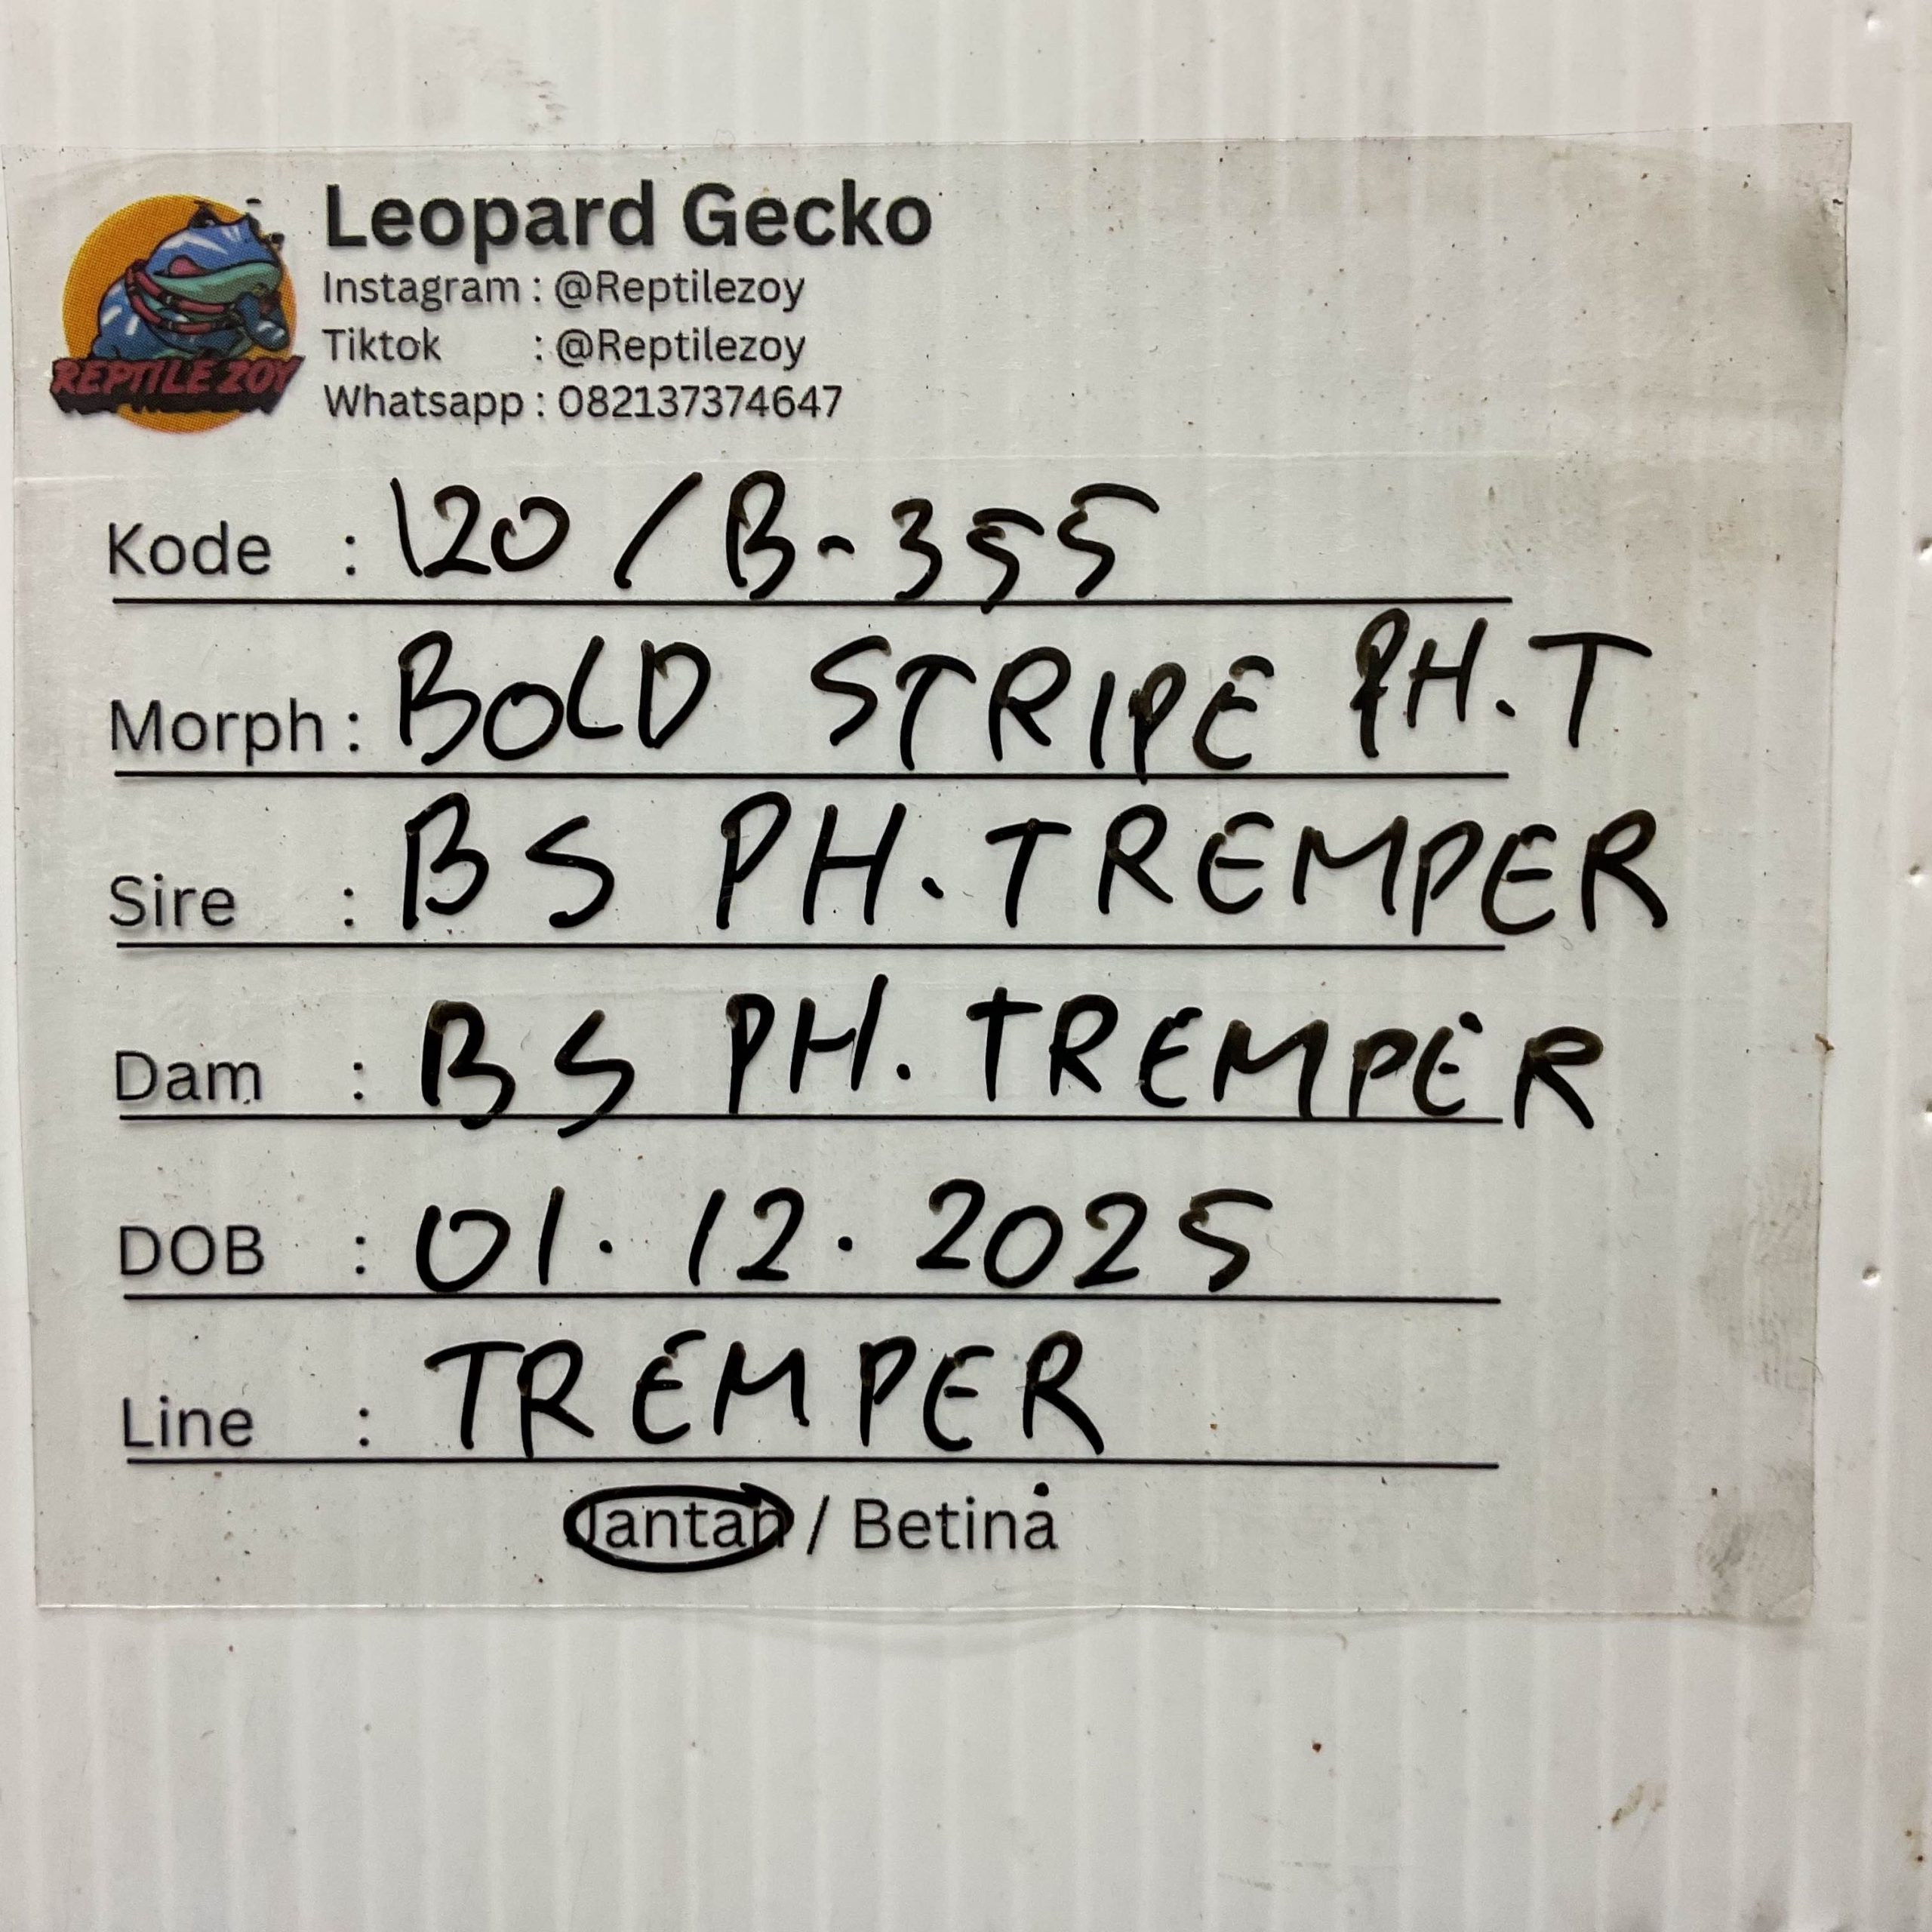 Leopard Gecko
Instagram : @Reptilezoy
Tiktok : @Reptilezoy
Whatsapp : 082137374647
REPTILE ZOY
Kode : 120 / B-355
Morph : BOLD STRIPE PH.T
Sire : BS PH.TREMPER
Dam : BS PH. TREMPER
DOB : 01.12.2025
Line : TREMPER
Jantan / Betina